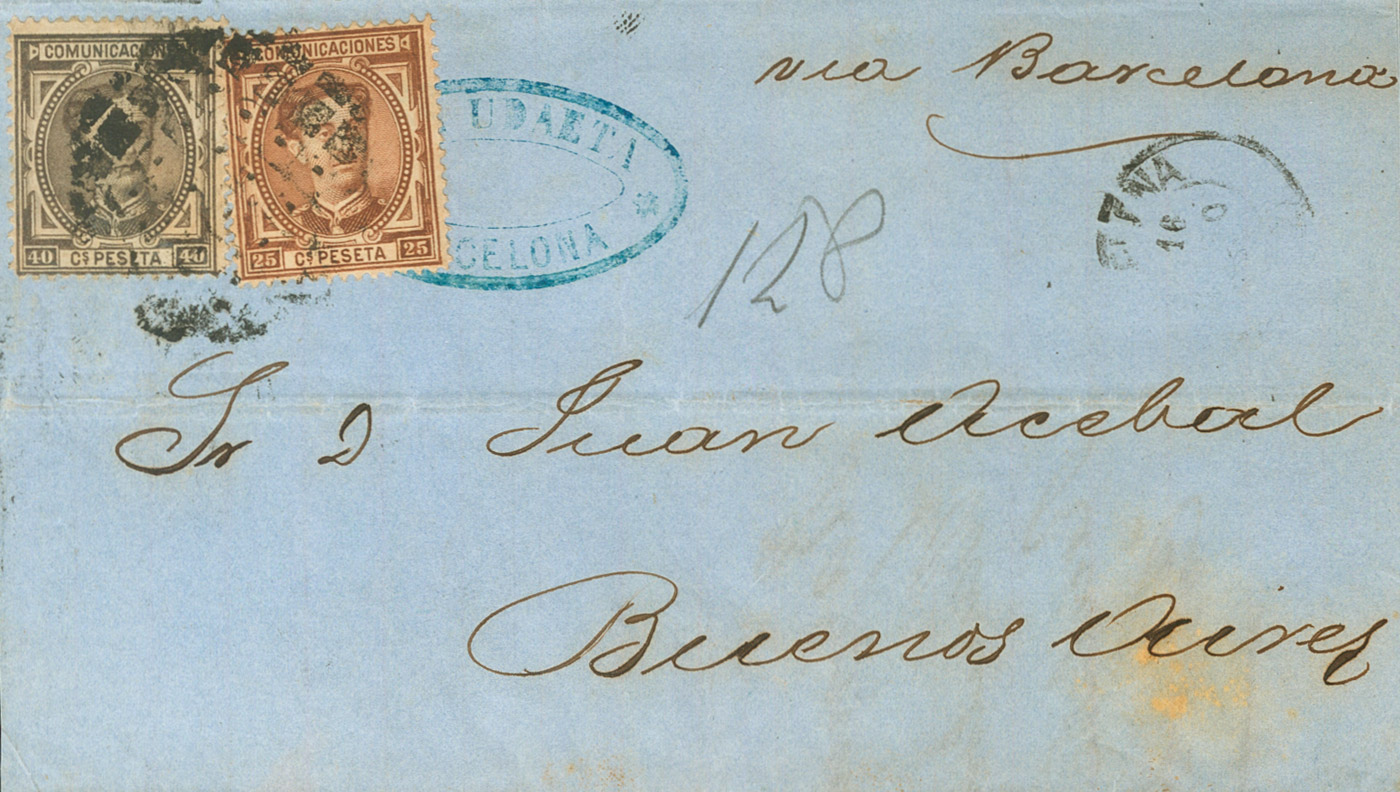 COMUNICACIONES
40 Cs PESETA 40
COMUNICACIONES
25 Cs PESETA 25
UDAETA
CELONA
via Barcelona
16
128
Sr D Juan Acebal
Buenos Aires